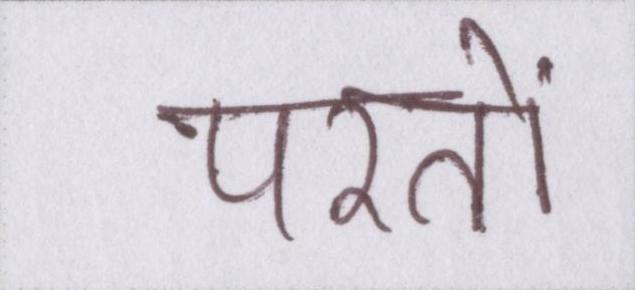 परतों